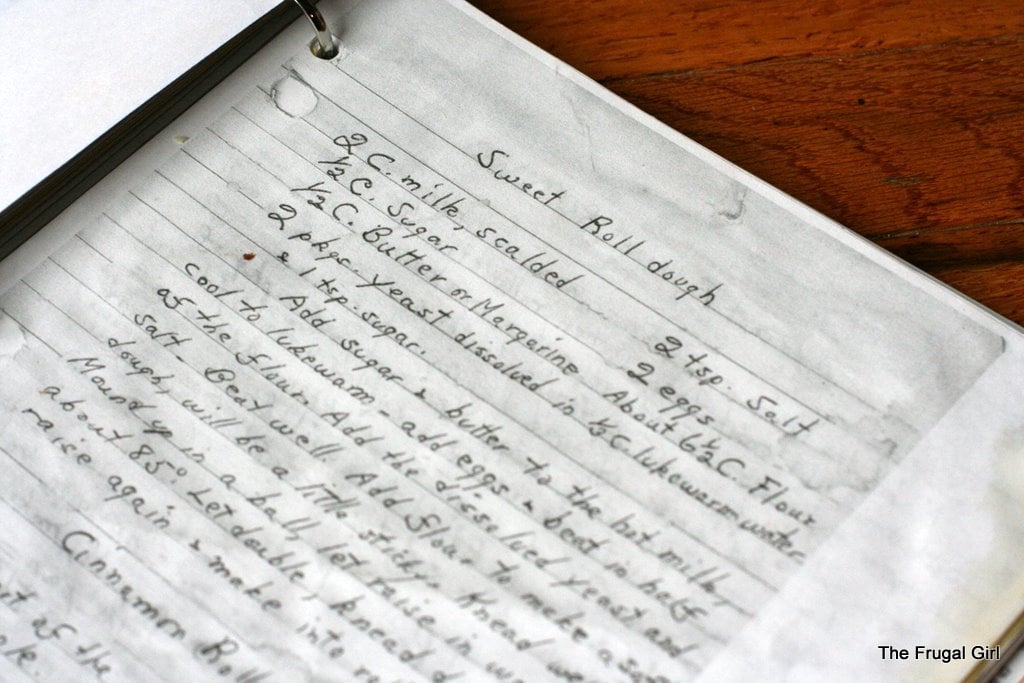 Sweet Roll dough
2 C. milk, scalded 2 tsp. Salt
1/2 C. Sugar 2 eggs
1/2 C. Butter or Margarine About 6 1/2 C. Flour
2 pkgs. Yeast dissolved in 1/2 C. lukewarm water
& 1 tsp. sugar.
Add sugar & butter to the hot milk,
cool to lukewarm - add eggs & beat in half
of the flour. Add the dissolved yeast and
salt - Beat well. Add flour to make a
dough, will be a little sticky. Knead
Mound up in a ball, let raise in
about 85° Let double, knead
raise again & make into
Cinnamon Roll
of the
The Frugal Girl